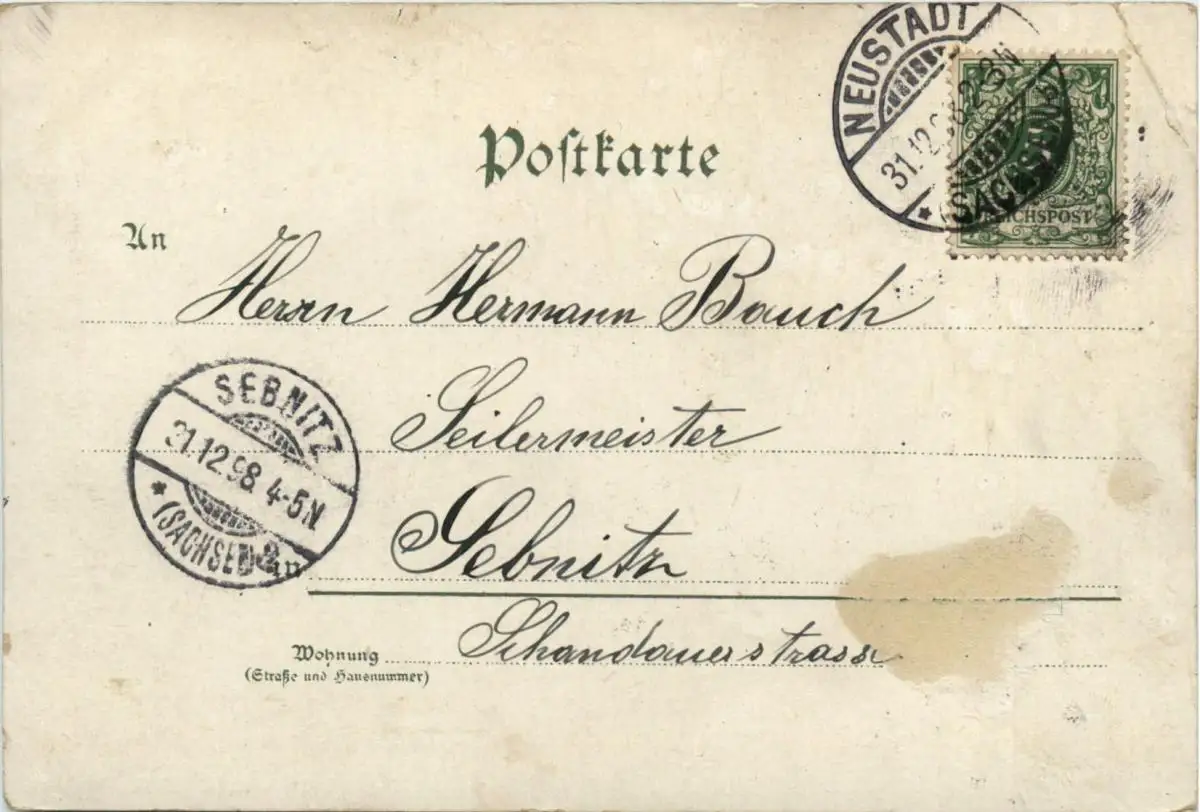 NEUSTADT
31.12.98 2-3N
* (SACHSEN)
REICHSPOST
Postkarte
An
Herrn Hermann Bauch
Seilermeister
SEBNITZ
31.12.98. 4-5N.
* (SACHSEN)
in
Sebnitz
Schandauerstrasse
Wohnung
(Straße und Hausnummer)